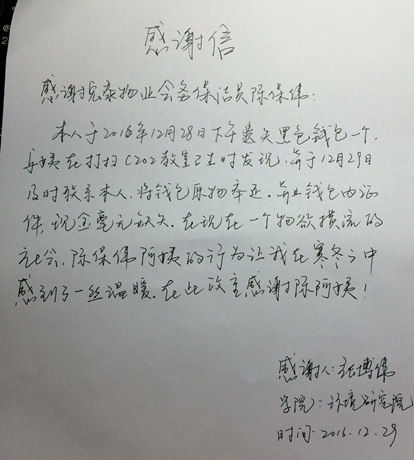 感谢信
感谢宏泰物业会务保洁员陈保伟:
本人于2016年12月28日下午遗失黑色钱包一个,
阿姨在打扫C202教室卫生时发现,并于12月29日
及时联系本人,将钱包原物奉还。并且钱包内证
件,现金毫无缺失。在现在一个物欲横流的
社会,陈保伟阿姨的行为让我在寒冬之中
感到了一丝温暖。在此致意感谢陈阿姨!
感谢人:张博伟
学院:环境研究院
时间:2016.12.29